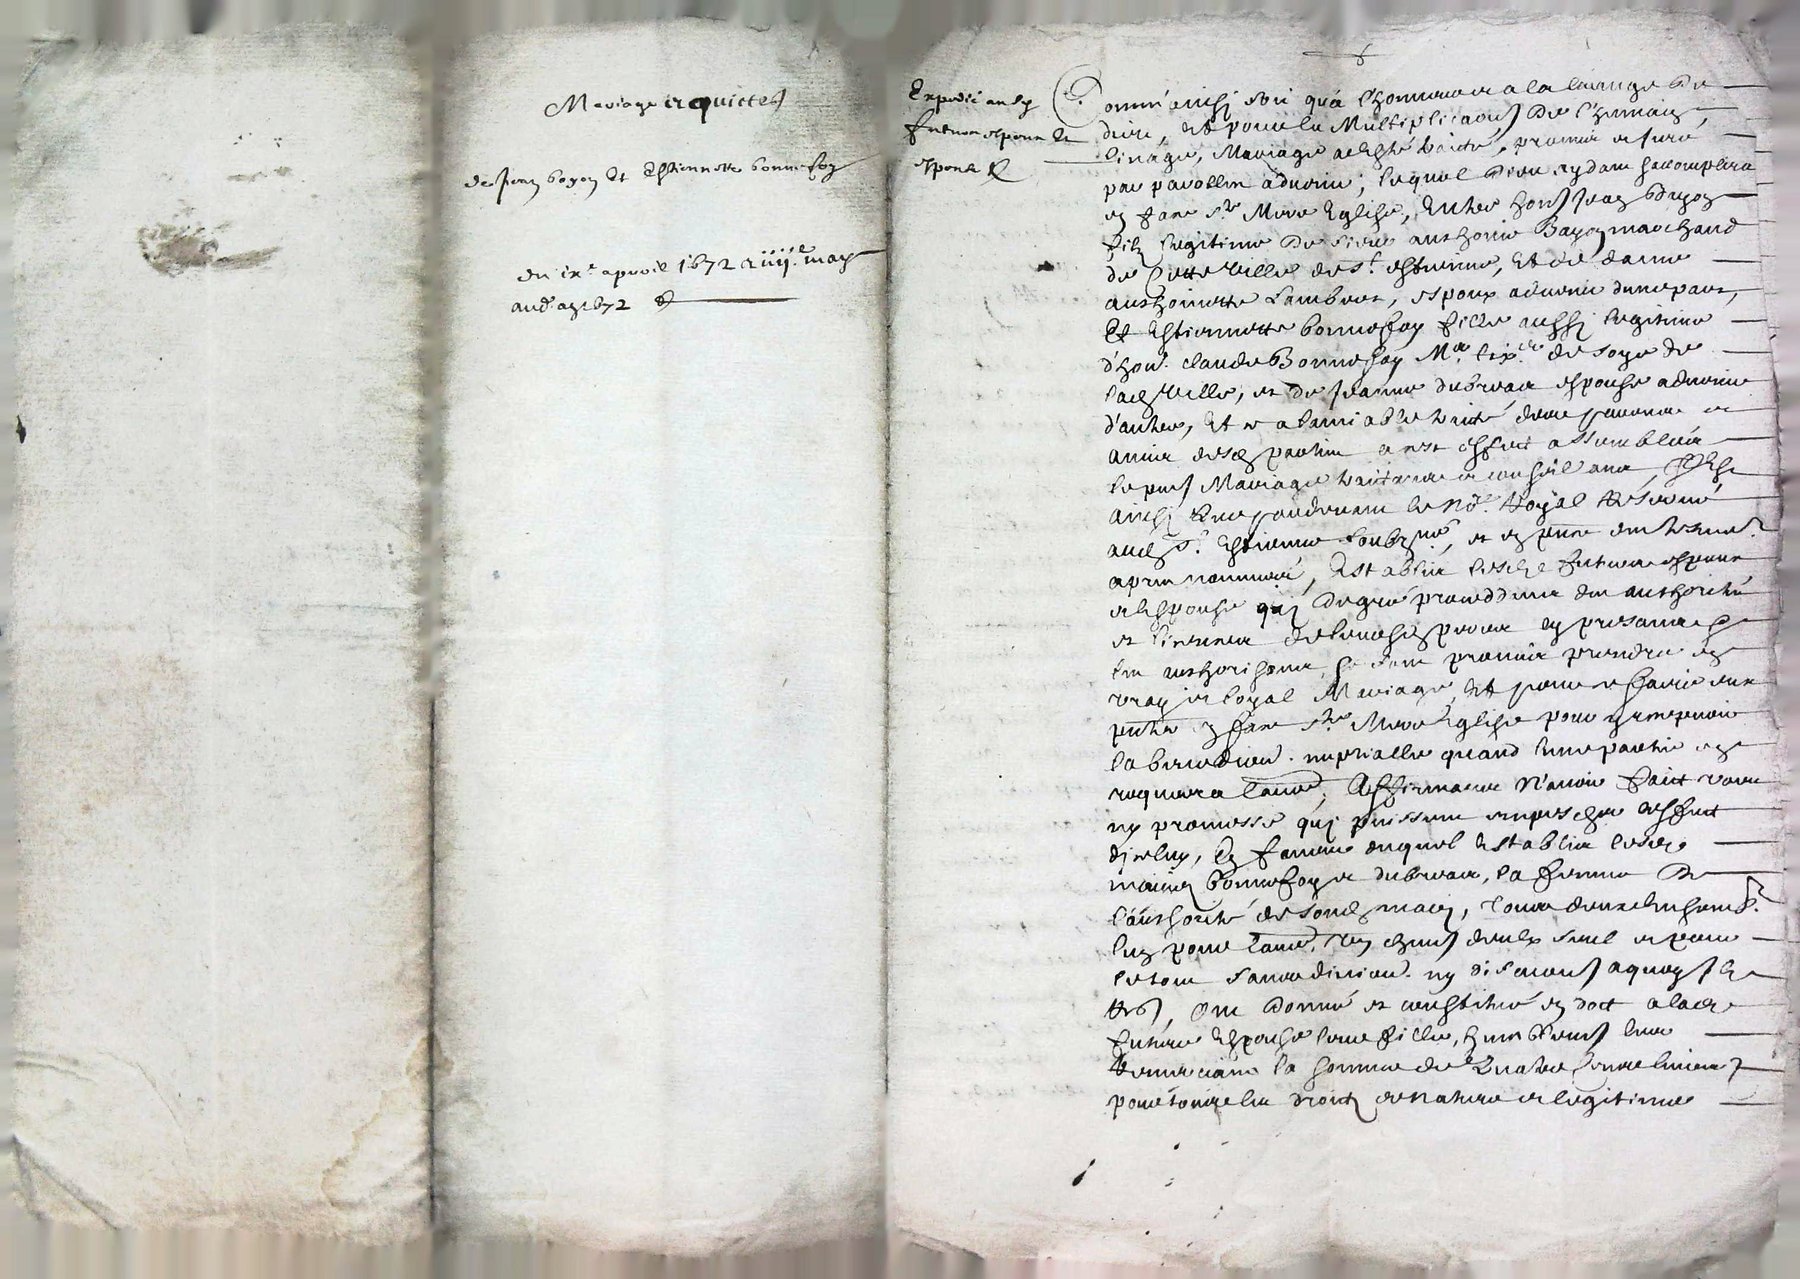 Mariage et quictes
de Jean bayon Et Estiennette bonnefoy
du ixe apvril 1672 & iiiie may
aud an 1672
Expedié ausd
futurs espoux et
espouse
Comm' ainsi soit qu'à l'honneur et a la louange de
dieu, Et pour la Multiplicaon de l'humain
linage, Mariage a esté traicté, promis et juré
par parolles advenir; lequel Dieu aydant s'accomplira
en face Ste Mere Eglise, Entre hon Jean Bayon
filz legitime de sieur anthoine Bayon marchand
de Cette Ville de St estienne, Et de dame
anthoinette Lambert, espoux advenir d'une part,
Et Estiennette bonnefoy fille aussy legitime
d'hon. claude Bonnefoy Me de soye de
lad Ville, et de Jeanne dubreat espouse advenir
d'autre, Et a l'amiable traicté des parens et
amis desd parties a cest effect assemblés
le put Mariage traictant et conseillant, Est
ainsi que pardevant le Nore Royal Reservé
aud St Estienne soubzné, et en pnce des tesmoingz
apres nommés, Establis lesd futurs espoux
et Espouse qui de gré proceddans des authorités
et licences de leursd peres en presance
les authorisans, se sont promis prendre en
vray et loyal Mariage, Et pour ce faire se
pnter en face Ste Mere Eglise pour y recepvoir
la benediction nuptialle quand l'une partie en
requerra l'autre, Affirmans N'avoir faict vœu
ny promesse qui puissent empescher l'effect
d'icelluy, En faveur duquel Establis lesd
mariez bonnefoy et dubreat, la femme de
l'authorité de sond mary, tous deux ensemble
l'un pour l'autre, Un chun d'eulx seul et pour
le tout sans division ny discuons a quoy
ont donné et constitué en dot a lad
future Espouse leur fille,
Remerciant la somme de Quatre Cents livres
pour tous les droitz de nature et legitime